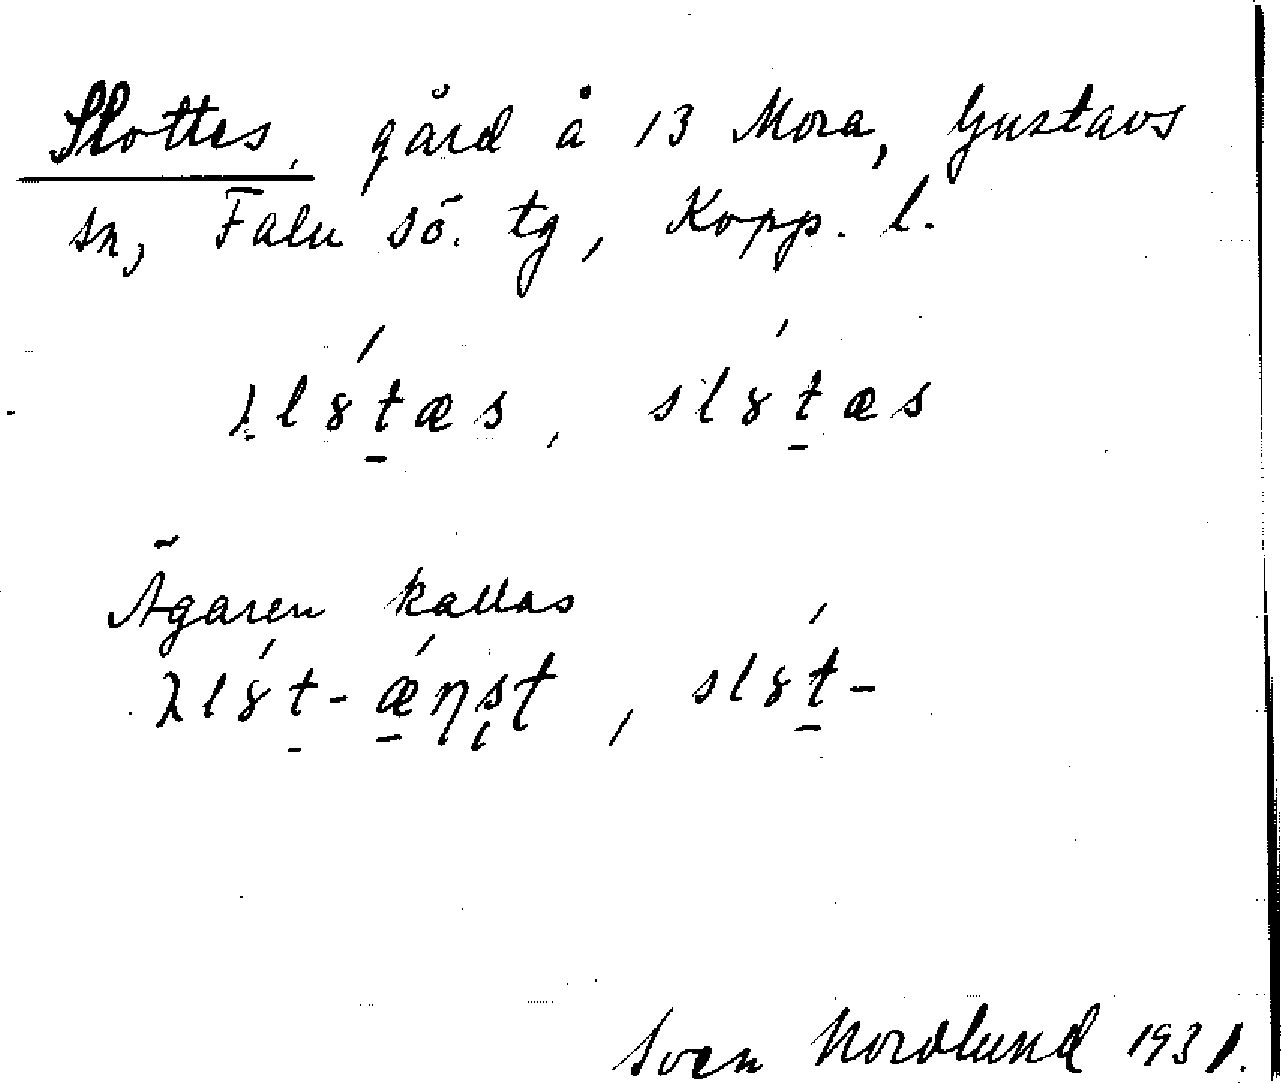 Slottes, gård å 13 Mora, Gustavs
sn, Falu sö. tg, Kopp. l.
λlȣ́tæs, slȣ́tæs
Ägaren kallas
λlȣ́t-ǽηşt, slȣ́t-
Sven Nordlund 1931.